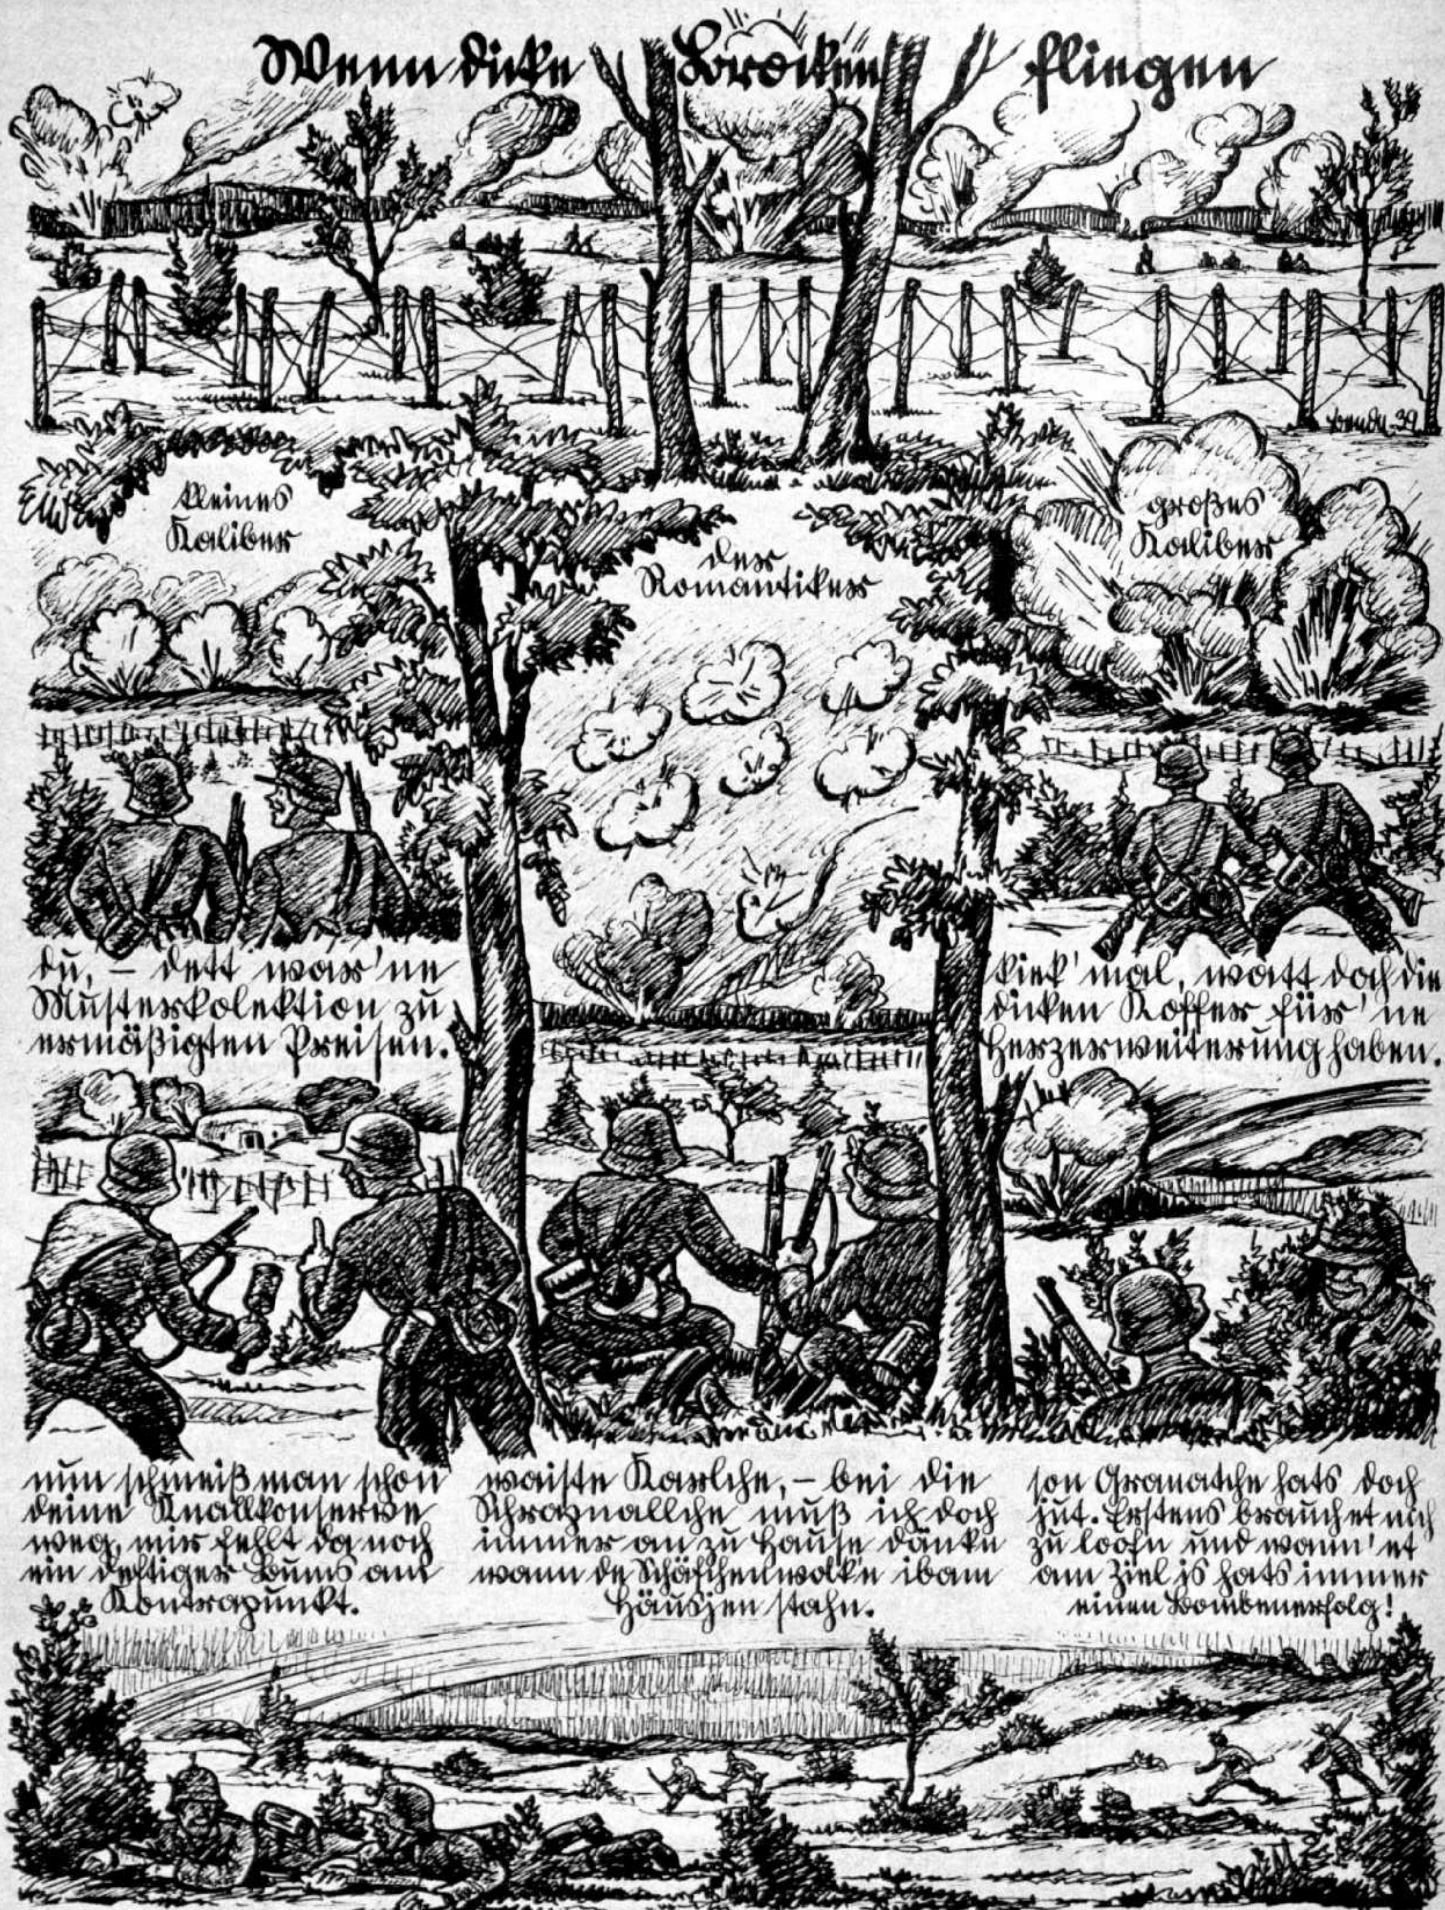 Wenn dicke Brocken fliegen
39
kleines
Kaliber
der
Romantiker
großes
Kaliber
du, – dett war'ne
Musterkolektion zu
ermäßigten Preisen.
kiek' mal, watt doch die
dicken Koffer für' ne
Herzerweiterung haben.
nun schmeiß man schon
deine Knallkonserve
weg, mir fehlt da noch
ein deftiger Bums am
Kontrapunkt.
waiste Karlche, – bei die
Schrapnallche muß ich doch
immer an zu Hause dänke
wann de Schäfchenwolke ibam
Häusjen stahn.
son Granatche hats doch
jut. Erstens brauch et nich
zu loofn und wann' et
am Ziel is hats immer
einen Bombenerfolg!